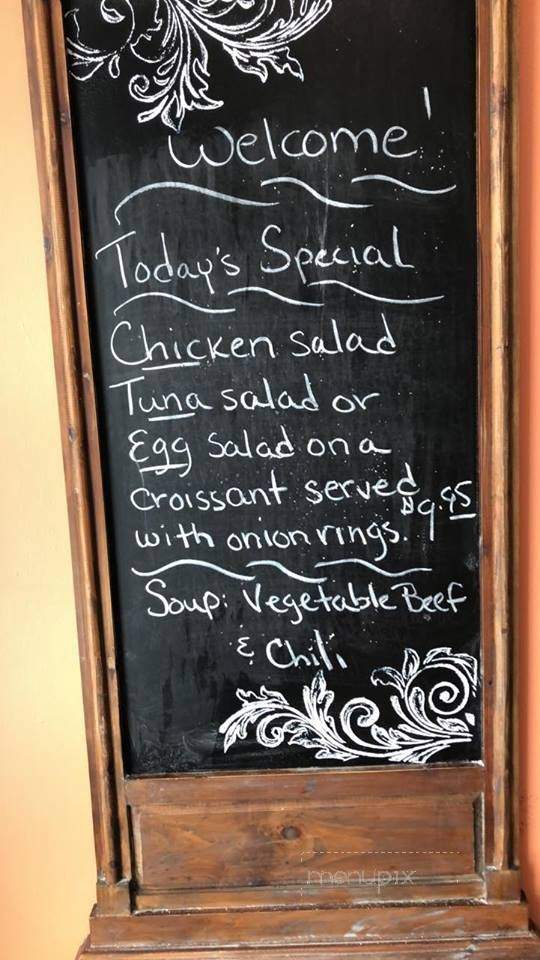 Welcome!
Today's Special
Chicken salad
Tuna salad or
Egg Salad on a
croissant served
with onion rings. $9.95
Soup: Vegetable Beef
& Chili
menupix